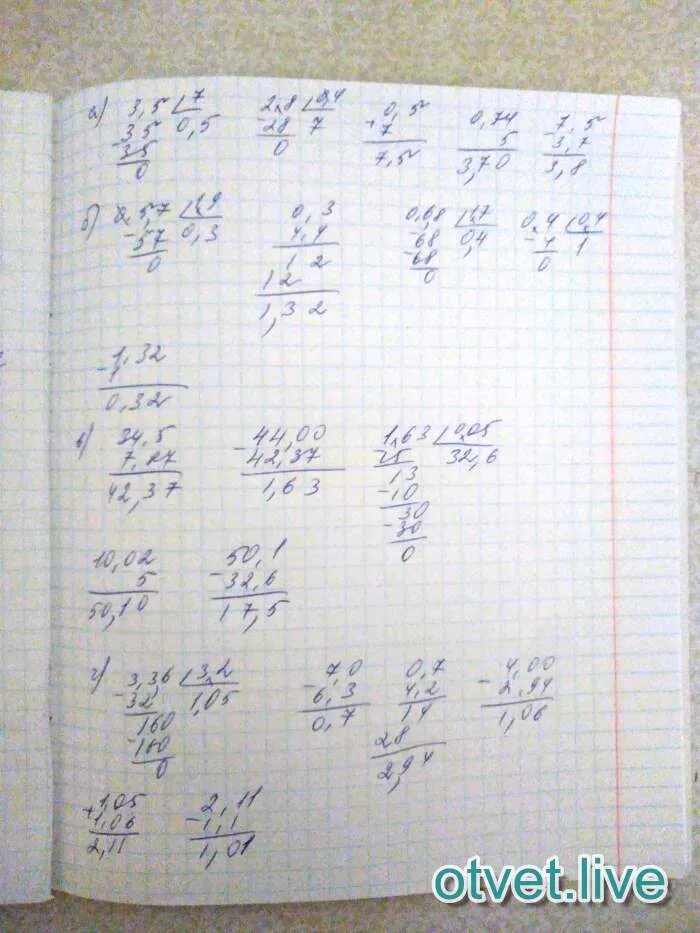 а) 3,5 7 2,8 0,4 0,5 0,74 7,5
- 35 0,5 - 28 7 + 7 5 - 3,7
35 0 7,5 3,70 3,8
0
б) 0,5,7 1,9 0,3 0,68 1,7 0,4 0,4
- 57 0,3 4,4 - 68 0,4 - 4 1
0 1 2 68 0
1 2 0
1,32
- 1,32
1
0,32
в) 34,5 - 44,00 1,63 0,05
7,87 42,37 - 15 32,6
42,37 1,63 13
- 10
30
- 30
0
10,02 - 50,1
5 32,6
50,10 17,5
г) 3,36 3,2 - 7,0 0,7 - 4,00
- 32 1,05 6,3 4,2 2,94
160 0,7 14 1,06
- 160 28
0 2,94
+ 1,05 - 2,11
1,06 1,1
2,11 1,01
otvet.live